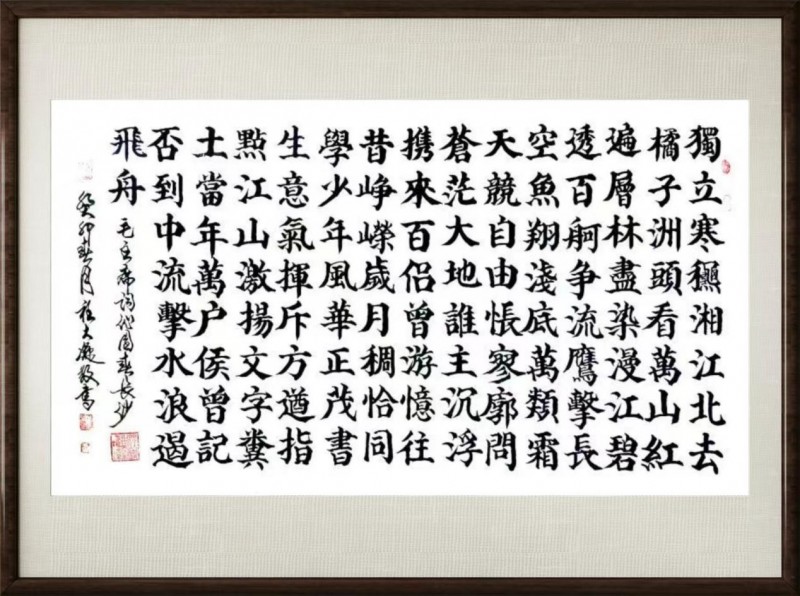 獨立寒龝湘江北去
橘子洲頭看萬山紅
遍層林盡染漫江碧
透百舸争流鷹擊長
空魚翔淺底萬類霜
天競自由悵寥廓問
蒼茫大地誰主沉浮
携來百侣曾游憶往
昔峥嶸歲月稠恰同
學少年風華正茂書
生意氣揮斥方遒指
點江山激揚文字糞
土當年萬户侯曾記
否到中流擊水浪遏
飛舟
毛主席詞沁園春長沙
癸卯春月程大敬書